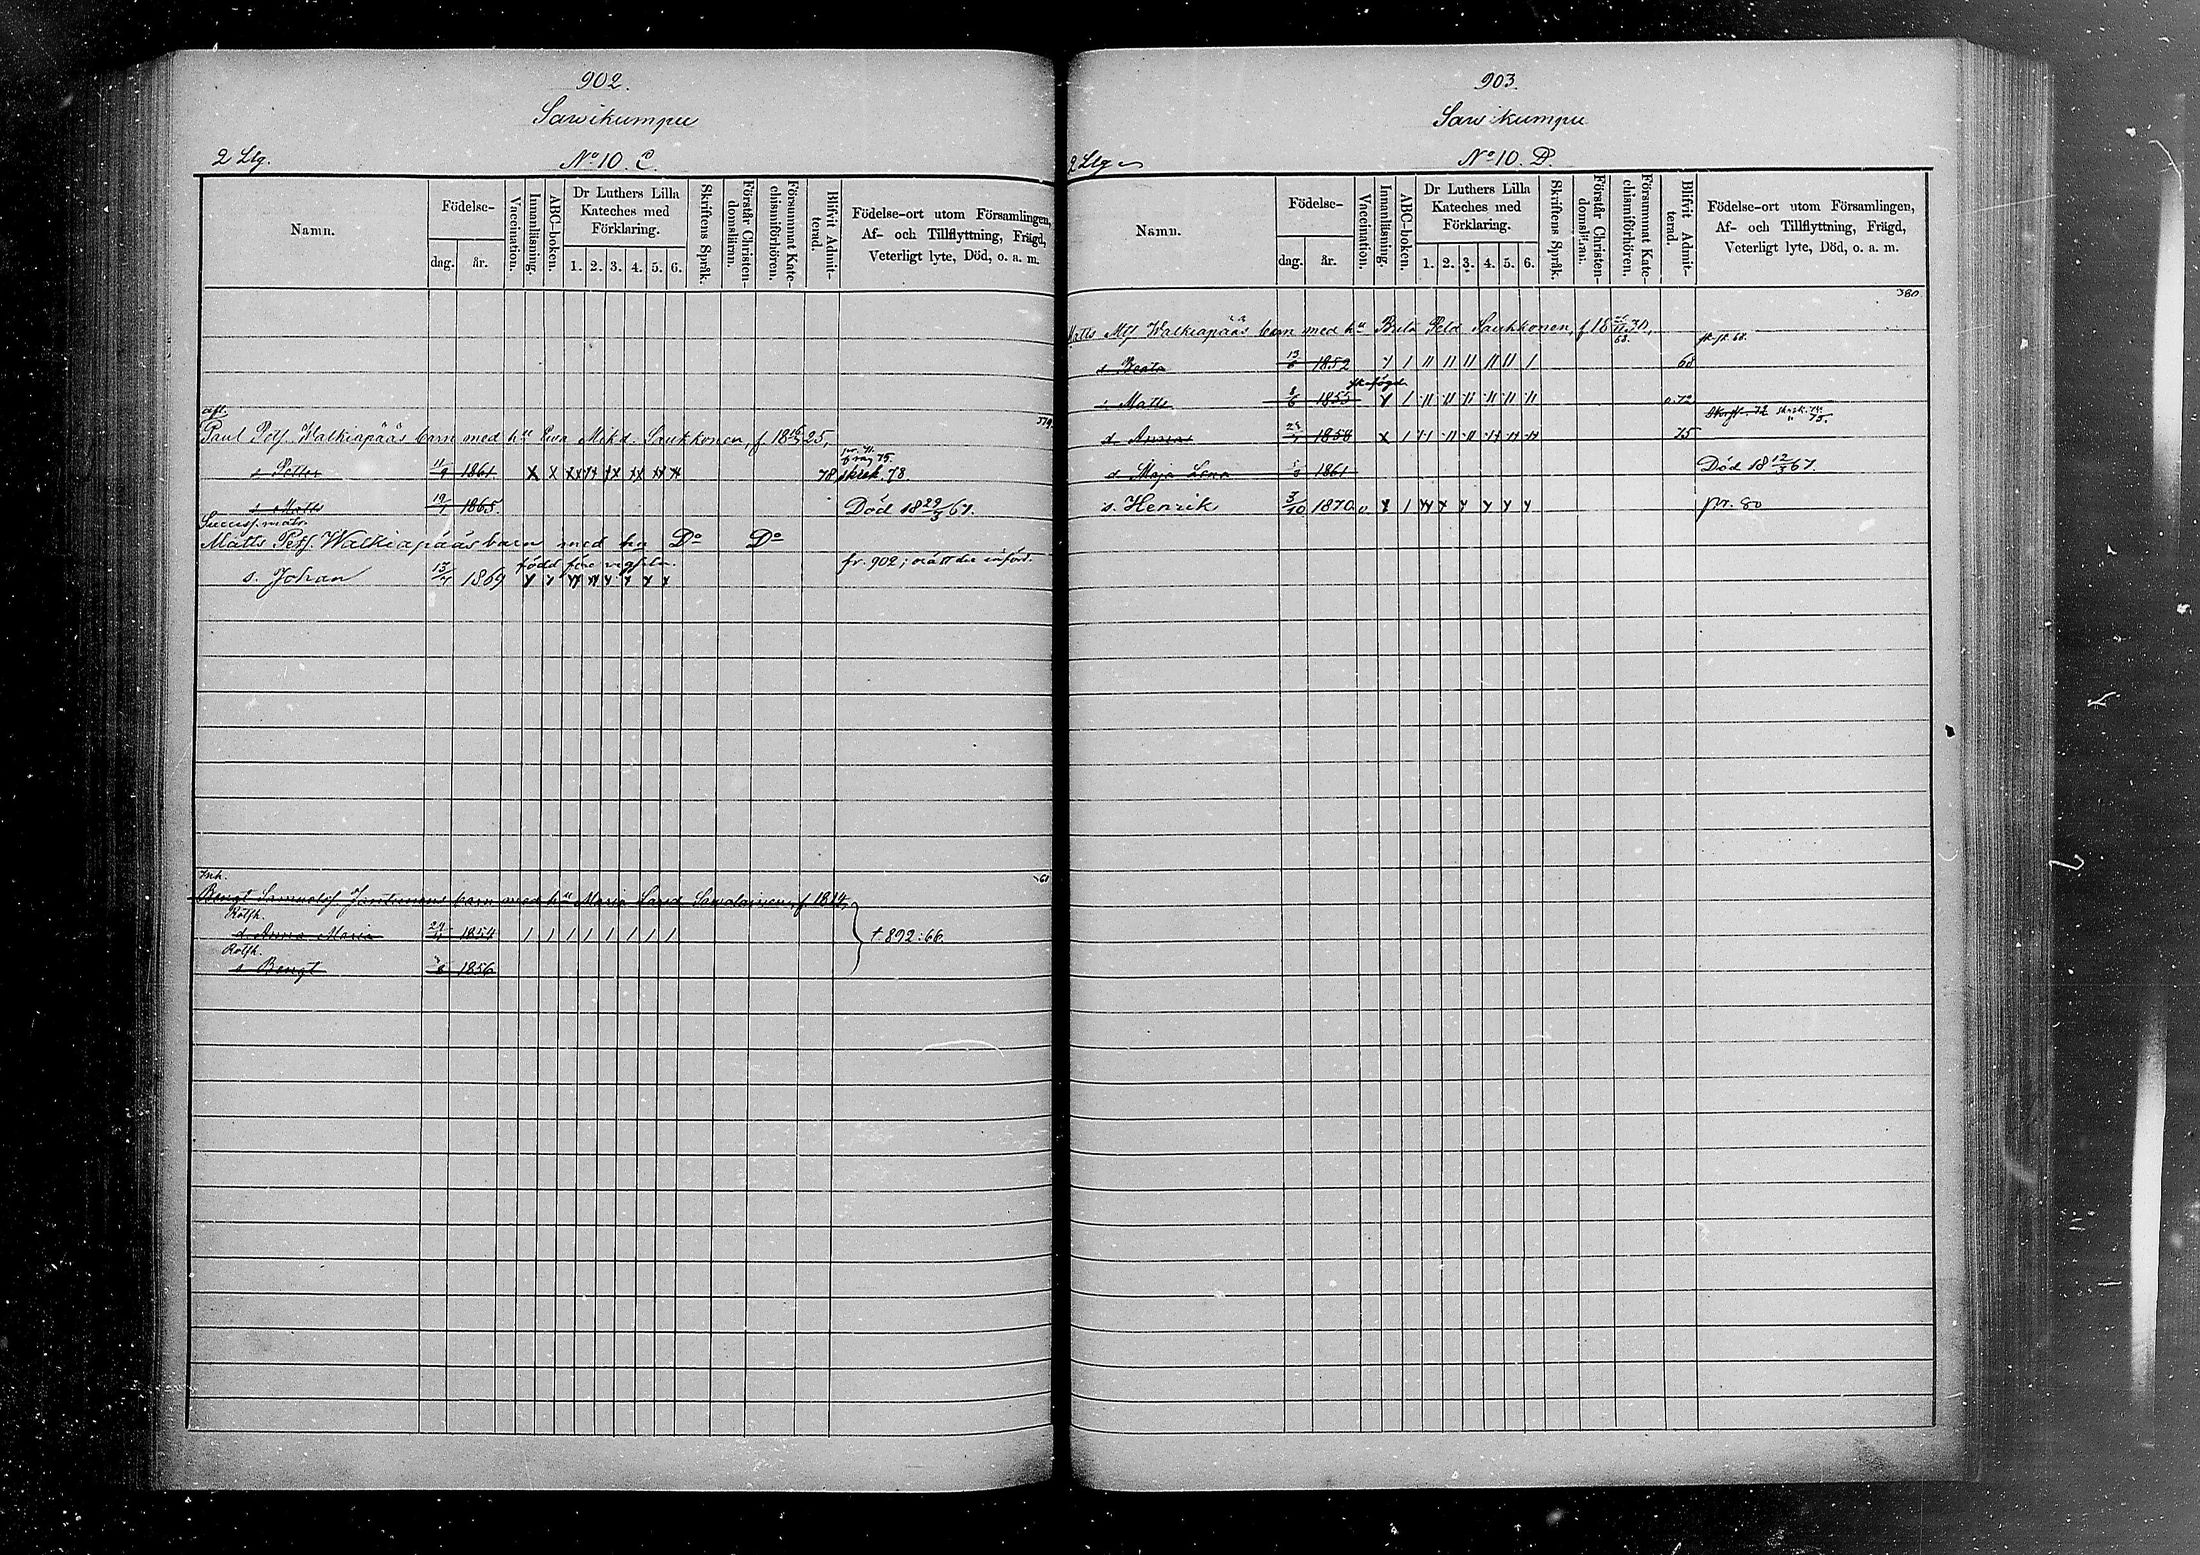 902.
Sawikumpu
2 Llg. No 10. C.
Namn. Födelse- dag. år. Vaccination. Innanläsning. ABC-boken. Dr Luthers Lilla Kateches med Förklaring. 1. 2. 3. 4. 5. 6. Skriftens Språk. Förstår Christendomsläran. Försummat Katechismiförhören. Blifvit Admitterad. Födelse-ort utom Församlingen, Af- och Tillflyttning, Frägd, Veterligt lyte, Död, o. a. m.
Afl. 379
Paul Petf. Walkiapääs barn med hu Ewa Mikd. Saukkonen, f 18 25,
s. Petter 11/9 1861 78 75. 78.
s. Matts 19/7 1865 Död 18 29/3 67.
Matts Petf. Walkiapääs barn med hu Do Do
född före vigseln. fr. 902;
s. Johan 13/7 1869
Inh. 61
Bengt Samuelsf Jantunens barn med hu Maria Larsd Sawolainen, f 1824,
Rotfh.
d. Anna Maria 1854 † 892:66.
Rotfh.
s Bengt 1856
903.
Sawikumpu
2 Llg No 10. D.
Namn. Födelse- dag. år. Vaccination. Innanläsning. ABC-boken. Dr Luthers Lilla Kateches med Förklaring. 1. 2. 3. 4. 5. 6. Skriftens Språk. Förstår Christendomsläran. Försummat Katechismiförhören. Blifvit Admitterad. Födelse-ort utom Församlingen, Af- och Tillflyttning, Frägd, Veterligt lyte, Död, o. a. m.
380.
Matts Mf Walkiapääs barn med hu Beata Petd Saukkonen, f 18
68.
d Beata 13/6 1852 68
s Matts 1855 72
d. Anna 1858 75
d. Maja Lena 1861 Död 18 12/3 67.
s. Henrik 3/10 1870 v pr. 80